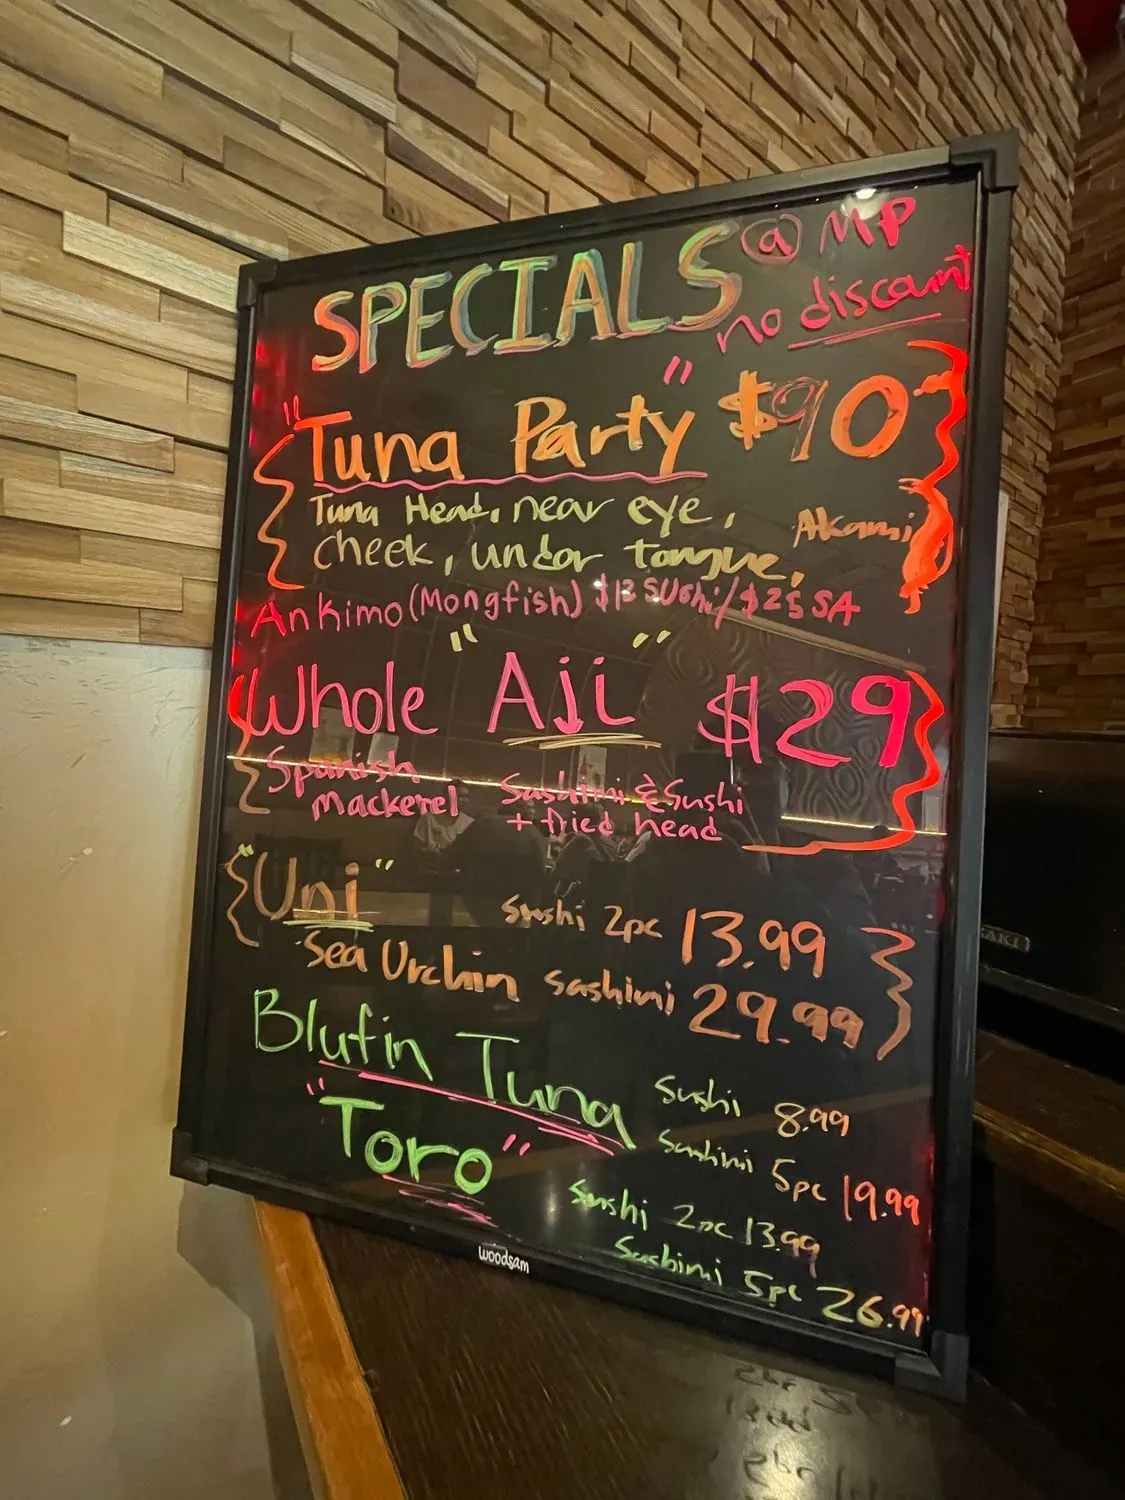 SPECIALS @ MP
no discount
"Tuna Party" $90
Tuna Head, near eye,
cheek, under tongue, Akami
Ankimo (Mongfish) $13 SUshi/$25 SA
Whole "Aji" $29
Spanish mackerel
Sashimi & Sushi
+ fried head
"Uni" sushi 2pc 13.99
Sea Urchin sashimi 29.99
Blufin Tuna sushi 8.99
Sashimi 5pc 19.99
"Toro" Sushi 2pc 13.99
Sashimi 5pc 26.99
woodsam